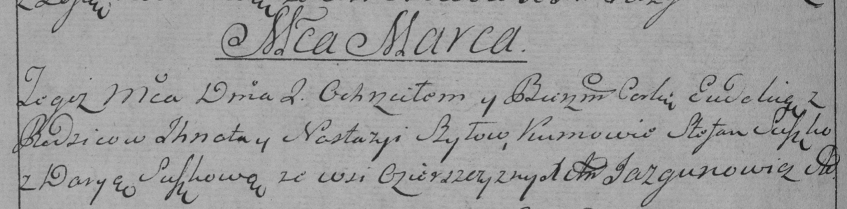 Mca Marca.
Tegoż Mca Dnia 2. Ochrzciłem y Bierzm Corkę Eudokię z
Rodzicow Ihnata y Nastazyi Szyłow, Kumowie Stefan Suszko
z Daryą Suszkową ze wsi Jazgunowicz